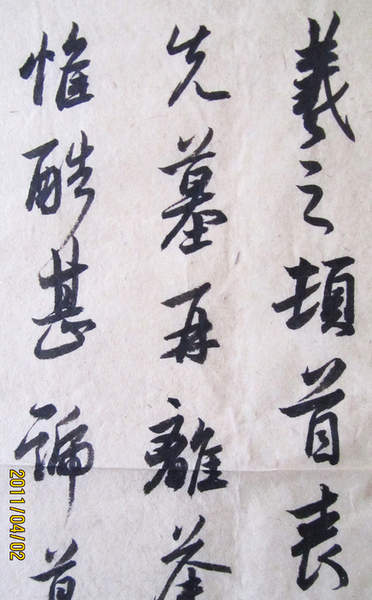 羲之頓首喪
先墓再離荼
惟酷甚號
2011/04/02